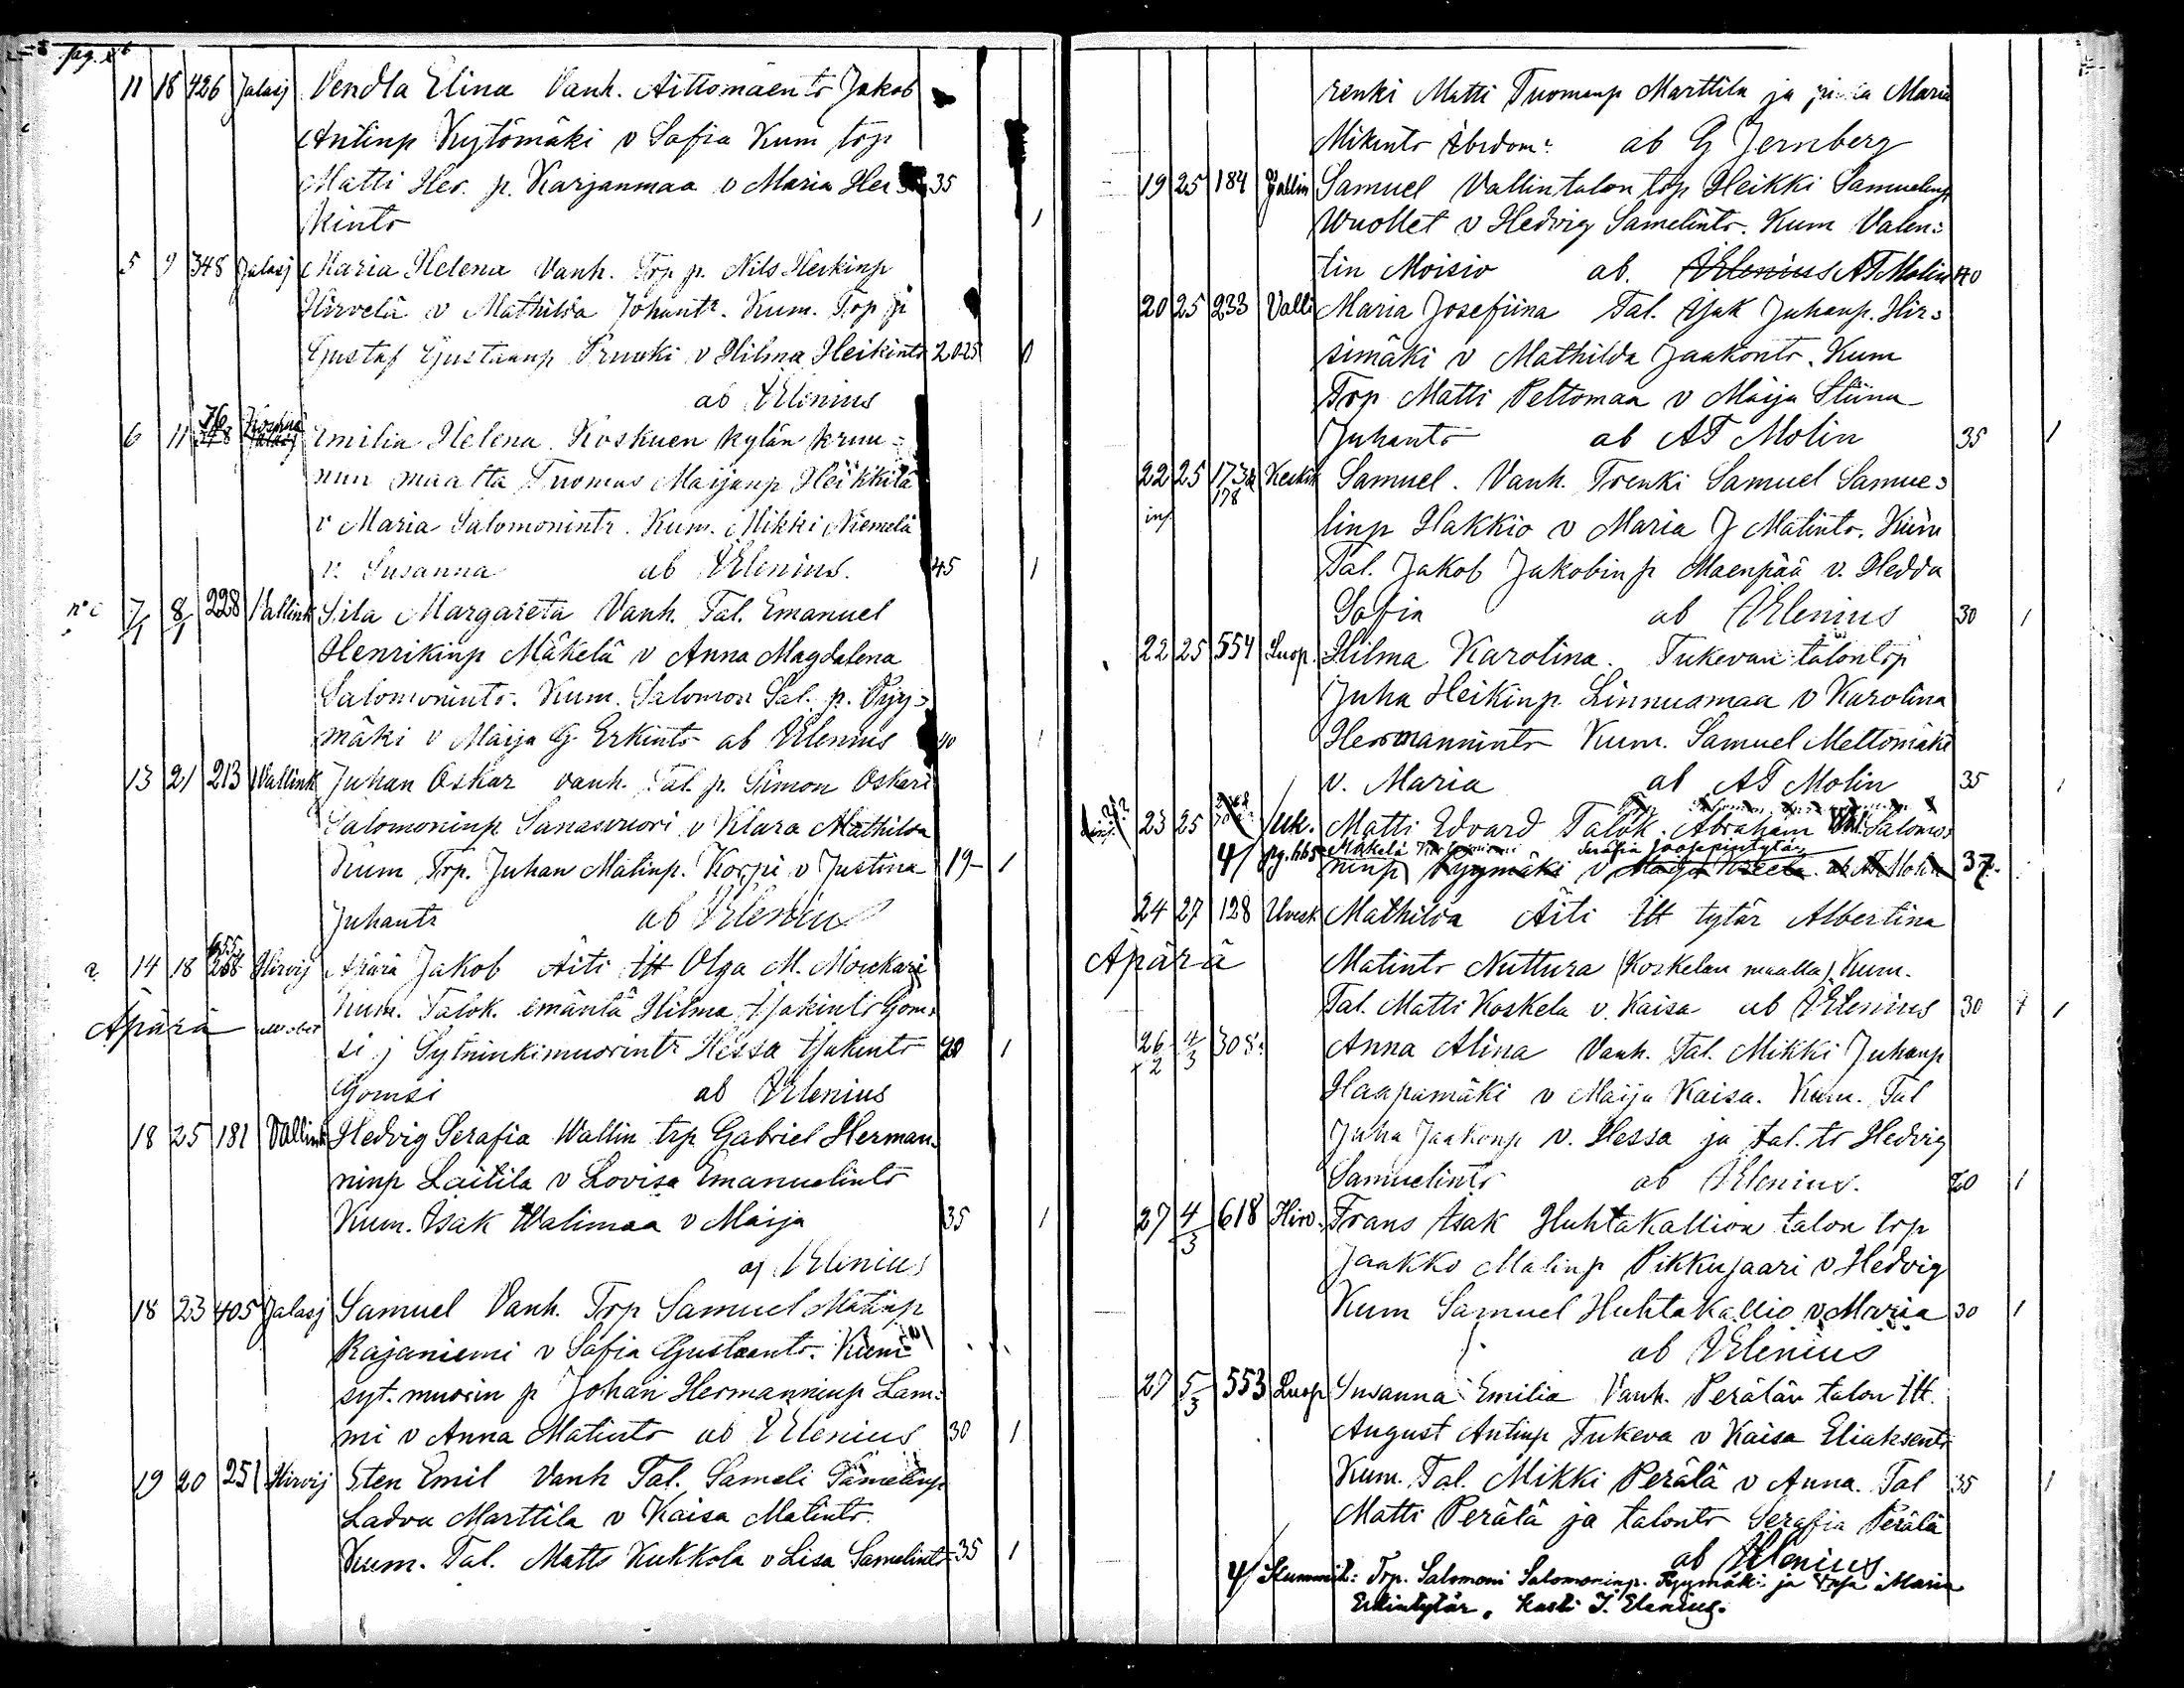 pag.
11 18 426 Jalasj Vendla Elina Vanh. Aittomäento Jakob
Antinp Kytömäki v Sofia Kum trp
Matti Her. p. Karjanmaa v Maria Hei 35
kintr 1
5 9 348 Jalasj Maria Helena Vanh. Trp p. Nils Heikinp
Hirvelä v Mathilda Johantr. Kum. Trp p
Gustaf Gustaanp v Hilma Heikintr 2025
ab Elenius
6 11 76 348 Jalasj Emilia Helena Koskuen kylän kruu=
nun maalta Tuomas Maijanp Heikkilä
v Maria Salomonintr. Kum. Mikki Niemelä
v. Susanna ab Elenius. 45 1
7/1 8/1 228 Vallink Sila Margareta Vanh. Tal. Emanuel
Henrikinp Mäkelä v Anna Magdalena
Salomonintr. Kum. Salomon Sal. p. Pyy=
mäki v Maija G Erkintr ab Elenius 40 1
13 21 213 Vallink Juhan Oskar vanh. Tal. p. Simon Oskari
Salomoninp Sanasvuori v Klara Mathilda
Kum Trp. Juhan Matinp. Korpi v Justina 19- 1
Juhantr ab Elenius
14 18 655 268 Hirvij Äpärä Jakob Äiti Itt Olga M. Moukari
Kum. Talok. emäntä Hilma Isakintr Gom=
Äpärä si j Sytninkimuorintr Hessa Isakintr 20 1
Gomsi ab Elenius
18 25 181 Vallink Hedvig Serafia Wallin trp Gabriel Herman=
ninp Laitila v Lovisa Emanuelintr
Kum. Isak Walimaa v Maija 35 1
af Elenius
18 23 405 Jalasj Samuel Vanh. Trp Samuel Matinp
Rajaniemi v Sofia Gustaantr. Kum
syt. muorin p Johan Hermanninp Lam=
mi v Anna Matintr ab Elenius 30 1
19 20 251 Hirvij Sten Emil Vanh Tal. Sameli Samelinp
Ladvu Marttila v Kaisa Matintr.
Kum. Tal. Matts Kukkola v Lisa Samelintr 35 1
renki Matti Tuomanp Marttila ja piika Maria
Mikintr ab G Jernberg
19 25 184 Jallin Samuel Vallintalon trp Heikki Samuelinp
Wuollet v Hedvig Samelintr. Kum Valen=
tin Moisio ab. Elenius AF Molin 40
20 25 233 Valli Maria Josefiina Tal. Isak Juhanp. Hir=
simäki v Mathilda Jaakontr. Kum
Trp Matti Peltomaa v Maija Stiina
Juhantr ab AF Molin 35 1
22 25 173a 178 Keskik Samuel. Vanh. Trenki Samuel Samue=
linp Hakkio v Maria J Matintr. Kum
Tal. Jakob Jakobinp Maenpää v. Hedda
Sofia ab Elenius 30 1
22 25 554 Luop. Hilma Karolina. Tukevan talon trp
Juha Heikinp. Linnusmaa v Karolina
Hermannintr Kum. Samuel Mettomäki
v. Maria ab AF Molin 35 1
23 25 Luk. Matti Edvard Talok. Abraham Salomo=
4/ Mäkelä Serafia Joosepintytär
ninp Pyymäki v Maija ab AF Molin 37.
24 27 128 Mathilda Äiti Itt tytär Albertina
Äpärä Matintr Nuttura (Koskelan maalla) Kum.
Tal. Matti Koskela v. Kaisa ab Elenius 30 1 1
26/2 4/3 308 Anna Alina Vanh. Tal. Mikki Juhanp
Haapamäki v Maija Kaisa. Kum. Tal
Juha Jaakonp v. Hessa ja tal. tr Hedvig
Samuelintr ab Elenius. 20 1
27 4/3 618 Hirv. Frans Isak Huhtakallion talon trp
Jaakko Matinp Pikkujaari v Hedvig
Kum Samuel Huhtakallio v Maria 30 1
ab Elenius
27 5/3 553 Luop Susanna Emilia Vanh. Perälän talon Itt.
August Antinp Tukeva v Kaisa Eliaksentr
Kum. Tal. Mikki Perälä v Anna. Tal 35 1
Matti Perälä ja talontr Serafia Perälä
ab Elenius
4/ Kummit: Trp. Salomoni Salomoninp. Pyymäki ja Maria
Erkintytär. Kasti J. Elenius.